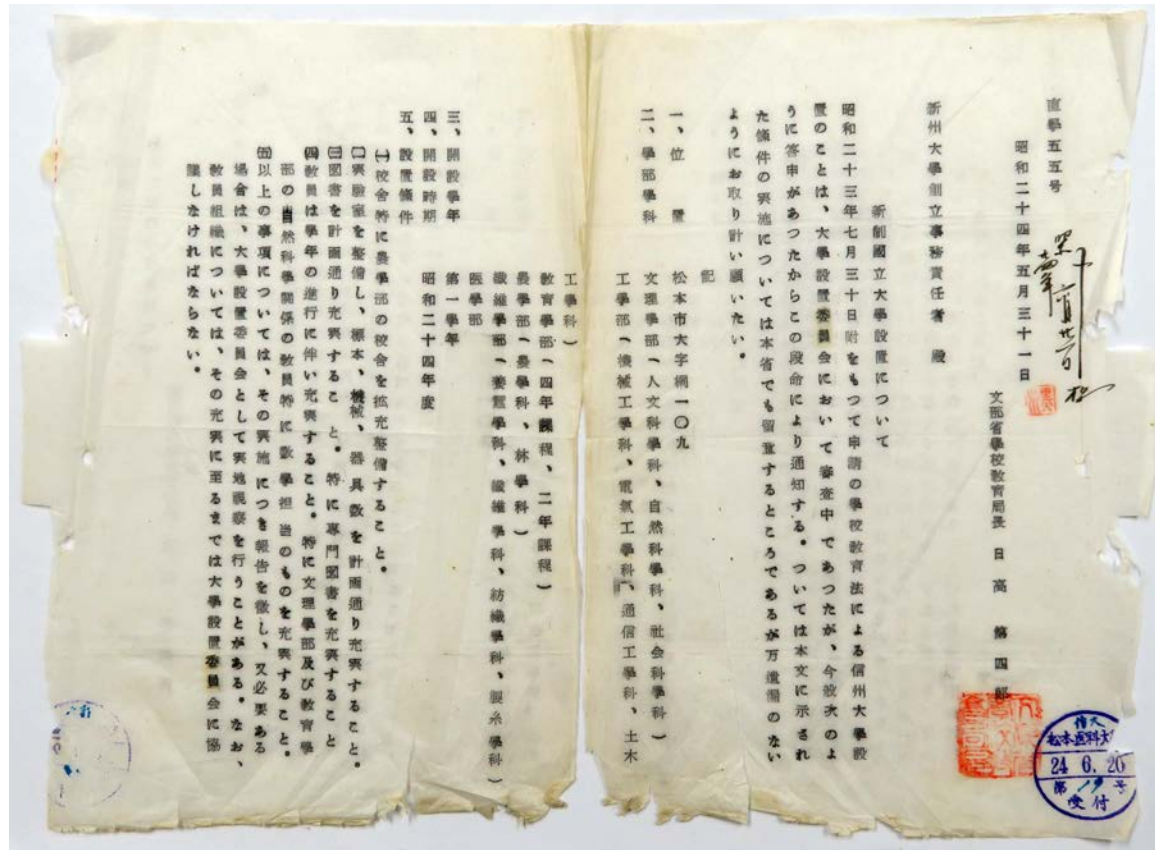 直學五五号
昭和二十四年五月三十一日
文部省學校教育局長 日高 第四郎
新州大學創立事務責任者 殿
新制國立大學設置について
昭和二十三年七月三十日附をもつて申請の學校教育法による信州大學設
置のことは、大學設置委員会において審査中であつたが、今般次のよ
うに答申があつたからこの段命により通知する。ついては本文に示され
た條件の実施については本省でも留意するところであるが万遺漏のない
ようにお取り計い願いたい。
記
一、位 置 松本市大字網一〇九
二、學部學科 文理學部(人文科學科、自然科學科、社会科學科)
工學部(機械工學科、電氣工學科、通信工學科、土木
工學科)
教育學部(四年課程、二年課程)
農學部(農學科、林學科)
繊維學部(養蚕學科、繊維學科、紡織學科、製糸學科)
医學部
三、開設學年 第一學年
四、開設時期 昭和二十四年度
五、設置條件
(一)校舎特に農學部の校舎を拡充整備すること。
(二)実驗室を整備し、標本、機械、器具数を計画通り充実すること。
(三)図書を計画通り充実すること。特に専門図書を充実すること
(四)教員は學年の進行に伴い充実すること。特に文理學部及び教育學
部の自然科學関係の教員特に数學担当のものを充実すること。
(五)以上の事項については、その実施につき報告を徴し、又必要ある
場合は、大學設置委員会として実地視察を行うことがある。なお、
教員組織については、その充実に至るまでは大學設置委員会に協
議しなければならない。
信大
松本医科大
24 6. 20
第 19 号
受付